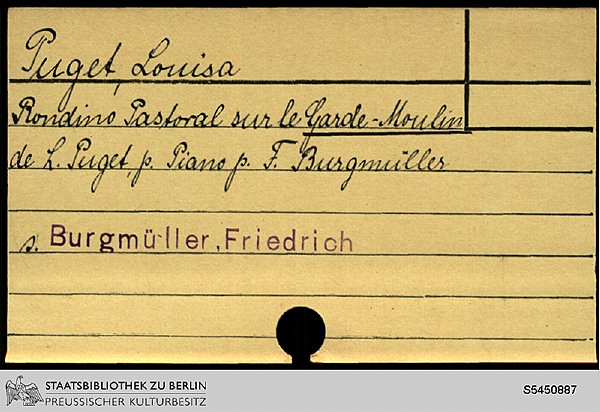 Puget, Louisa
Rondino Pastoral sur le Garde-Moulin
de L. Puget, p. Piano p. F. Burgmüller
s. Burgmüller, Friedrich
STAATSBIBLIOTHEK ZU BERLIN
PREUSSISCHER KULTURBESITZ
S5450887